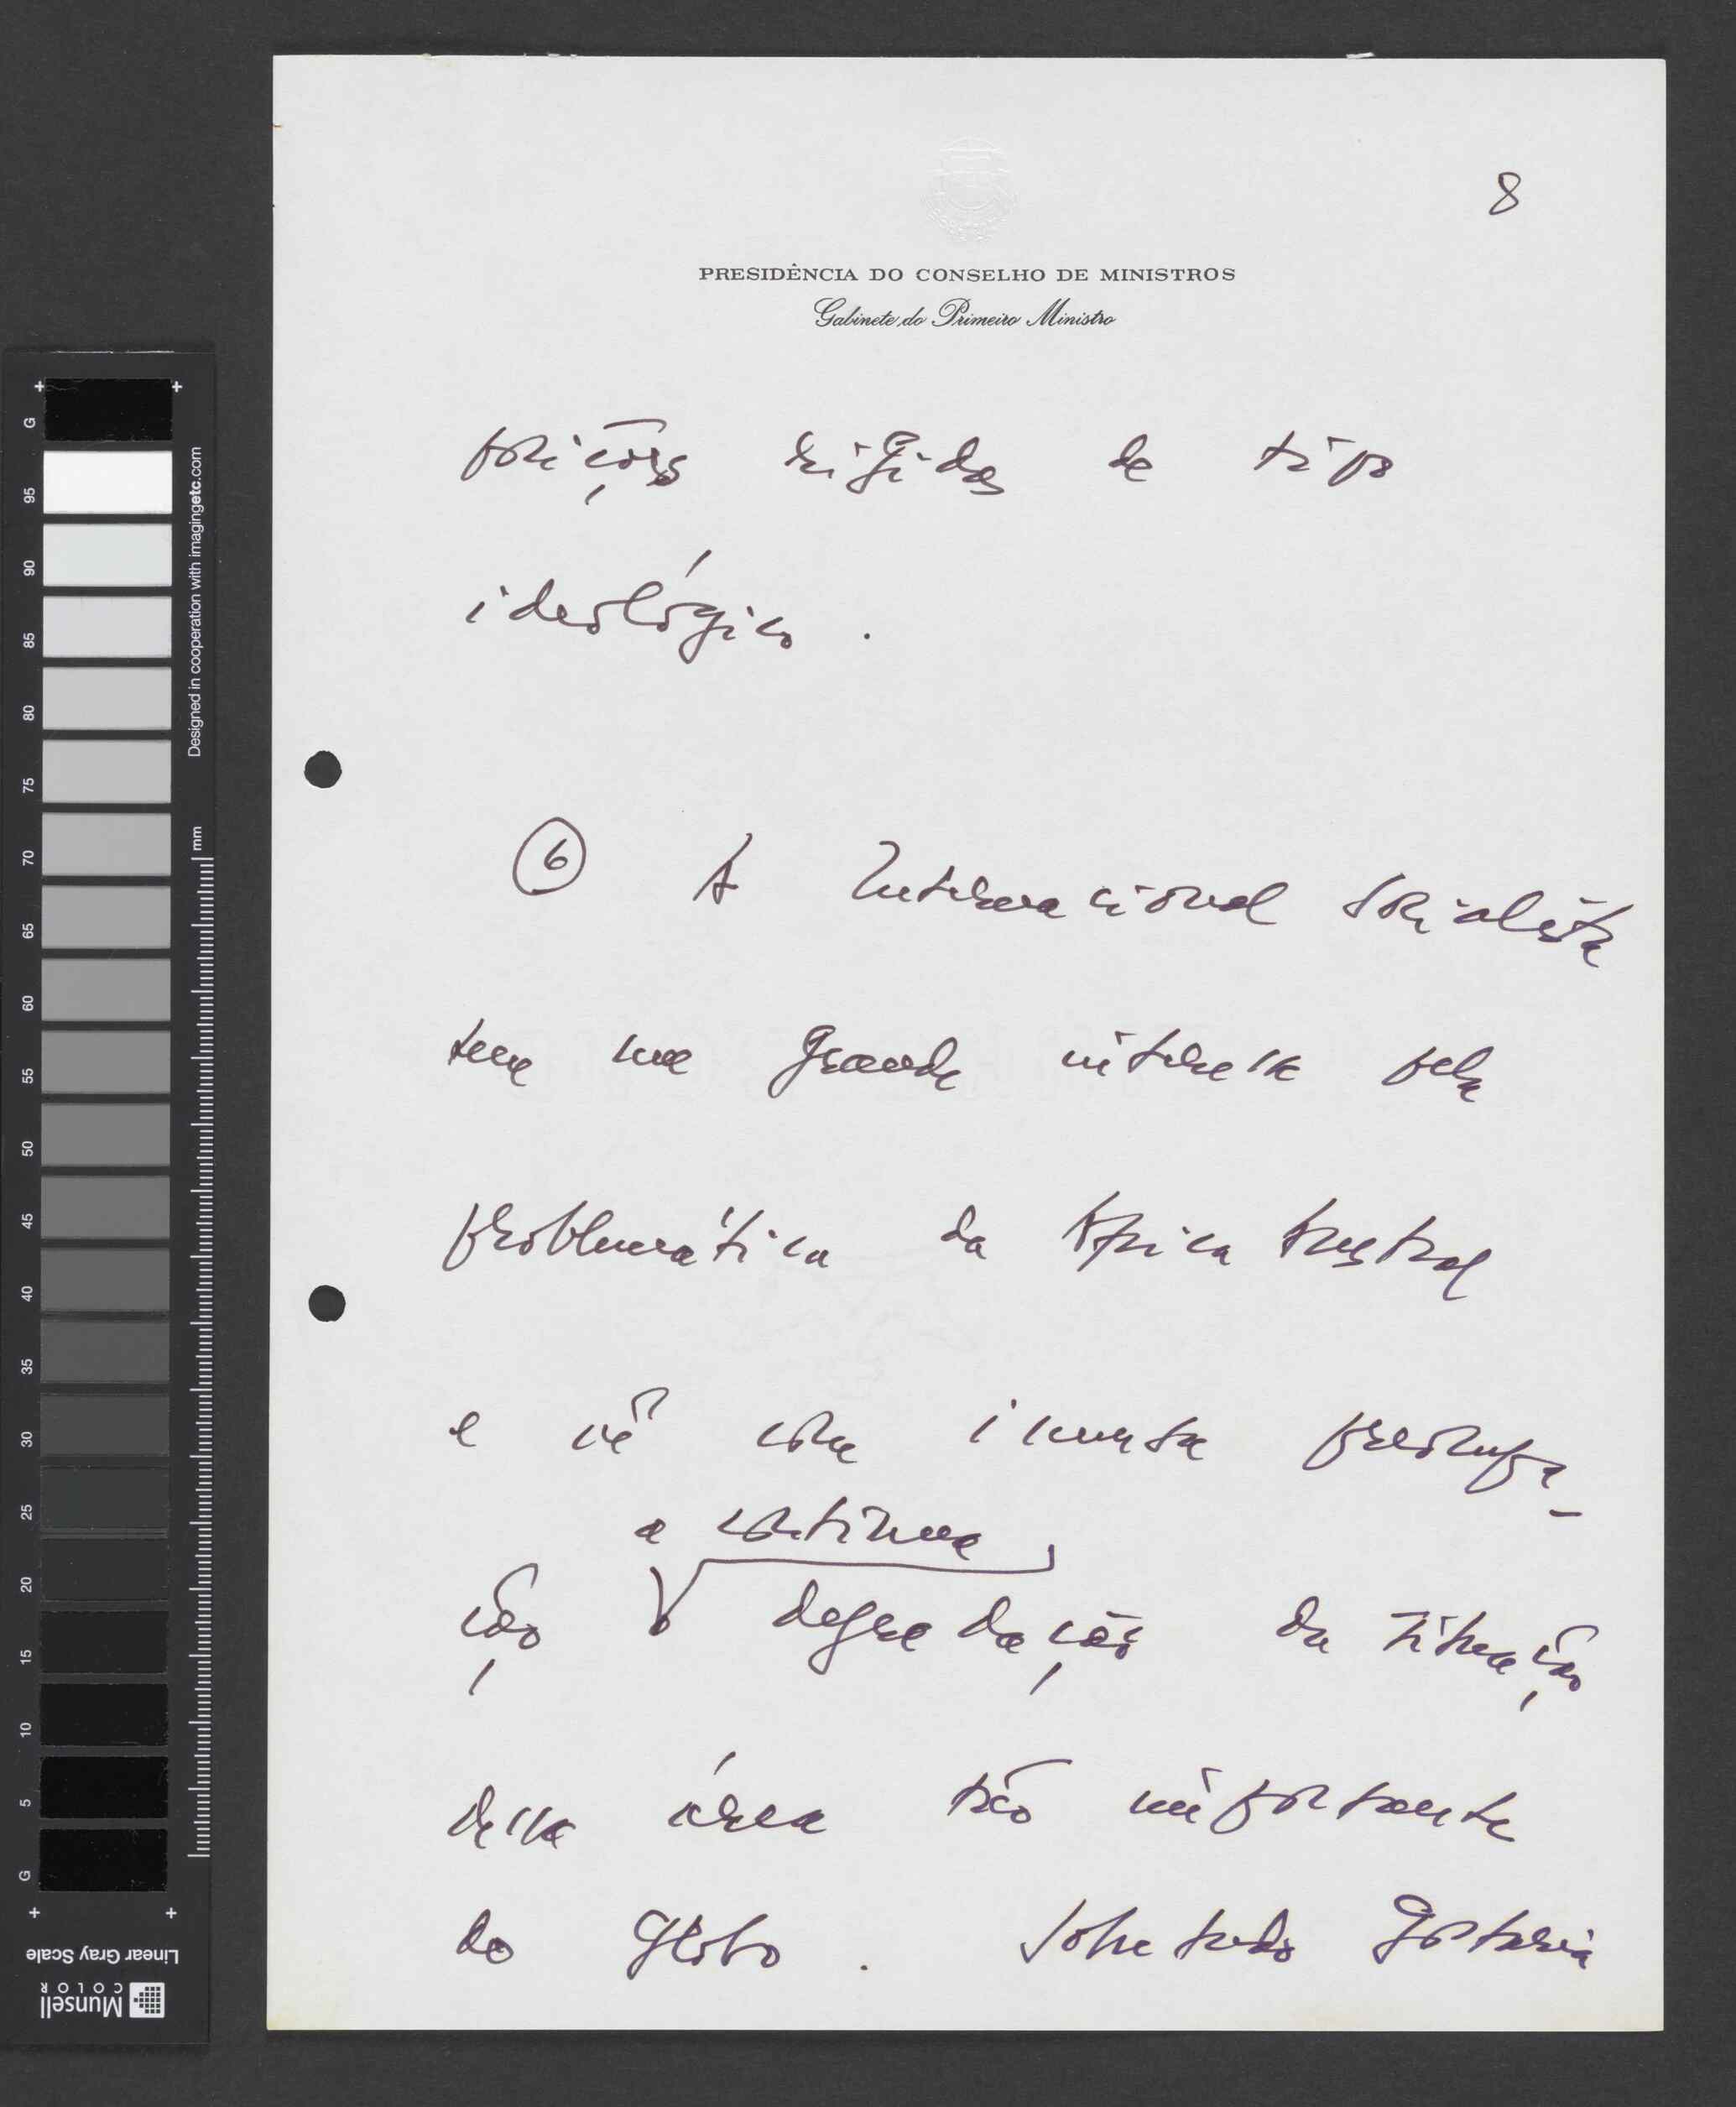 8
PRESIDÊNCIA DO CONSELHO DE MINISTROS
Gabinete do Primeiro Ministro
posições rígidas de tipo
ideológico.
6 A Internacional Socialista
tem um grande interesse pela
problemática da Africa Austral
e vê com imensa preocupa-
a contínua
ção degradação da situação
dessa área tão importante
do globo. Sobretudo gostaria
G 95 90 85 80 75 70 65 60 55 50 45 40 35 30 25 20 15 10 5 G
mm
Designed in cooperation with imagingetc.com
Linear Gray Scale
Munsell
COLOR